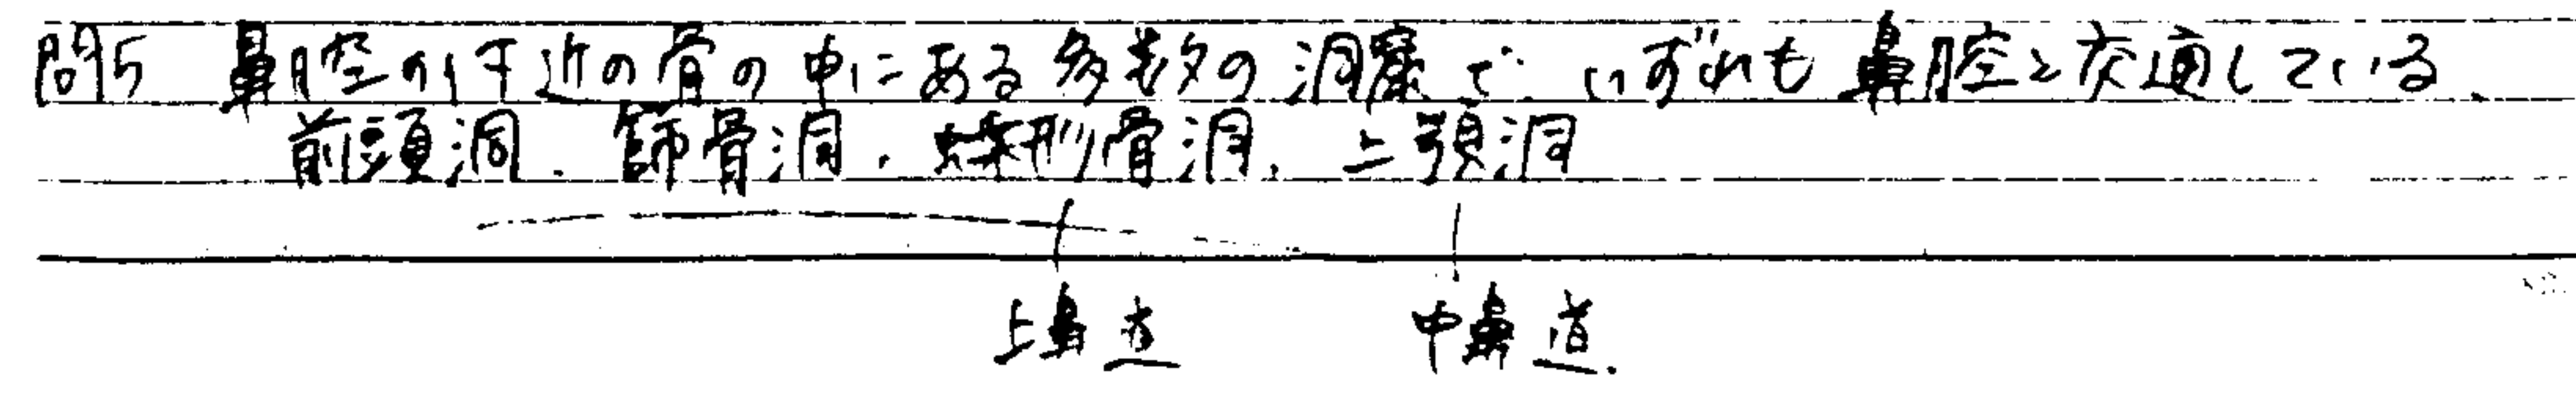 問5 鼻腔の付近の骨の中にある多数の洞窟で いずれも鼻腔と交通している.
前頭洞. 篩骨洞. 蝶形骨洞. 上顎洞
上鼻道 中鼻道.